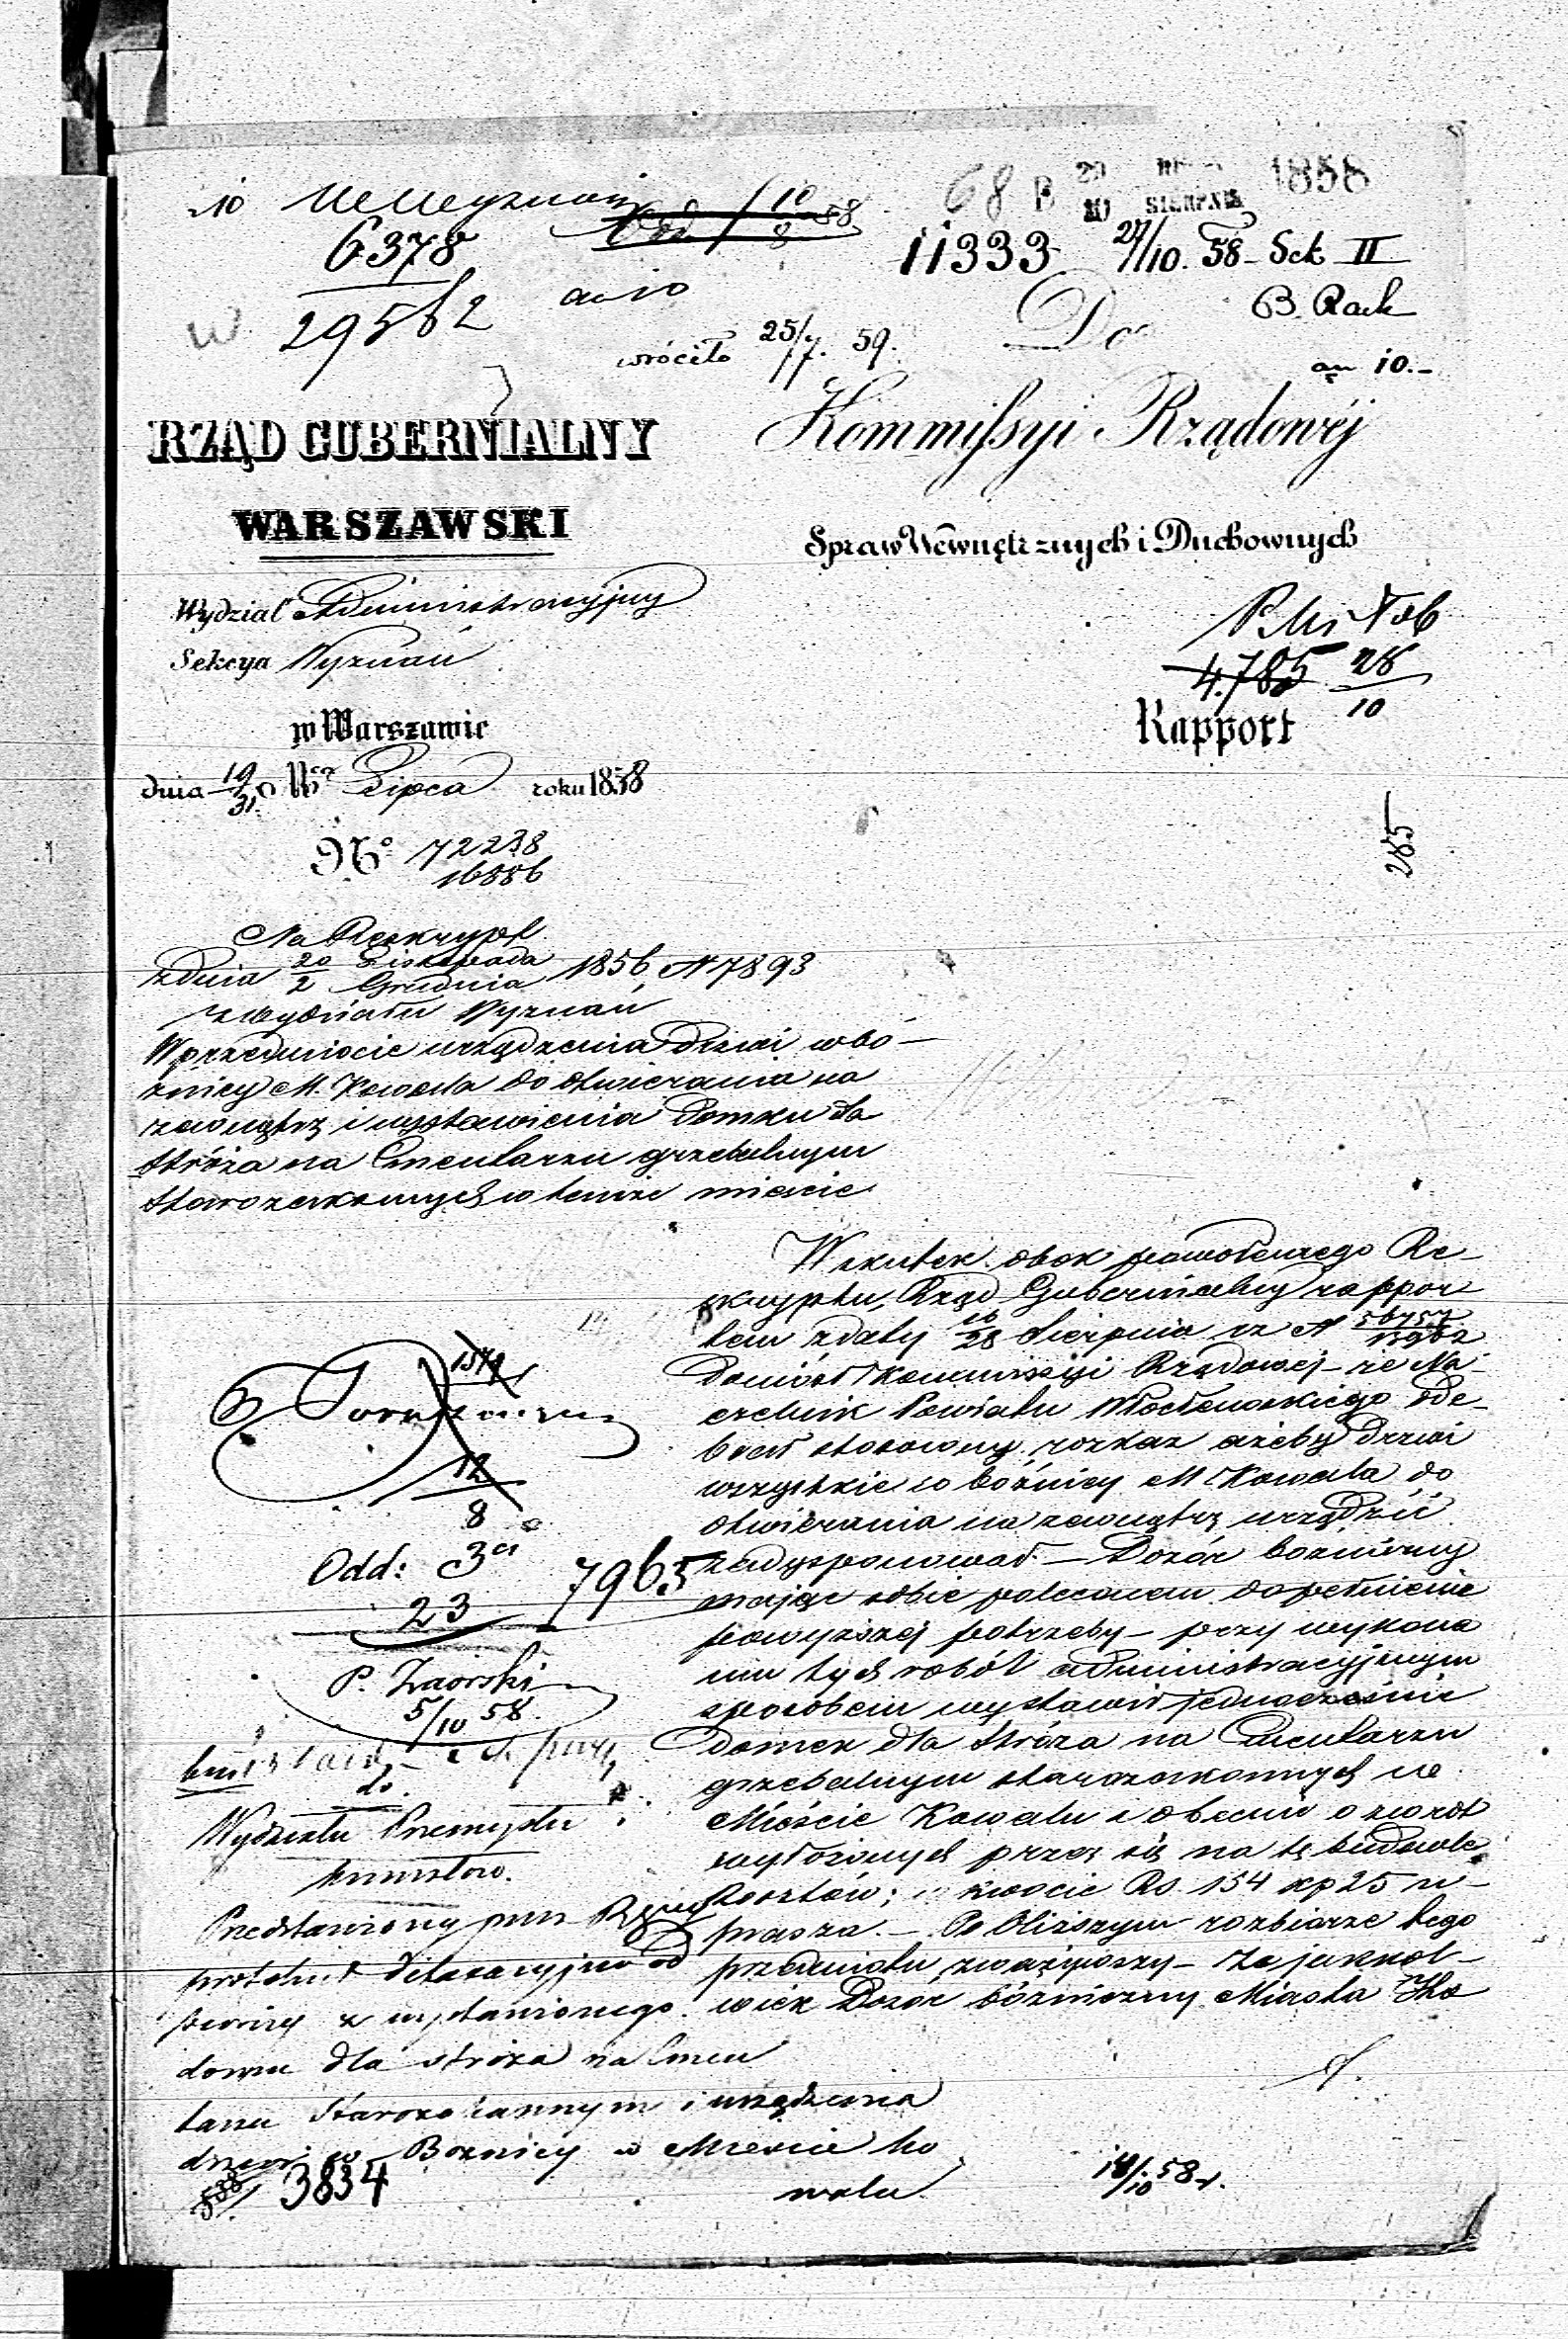 6378
29562
wróciło 25/7. 59.
68 B 29 SIERPNIA 1858
11333 27/10. 58 - Sek II
B. Rach
Do
an 10.-
Kommissyi Rządowéj
Spraw Wewnętrznych i Duchownych
RZĄD GUBERNIALNY
WARSZAWSKI
Wydział Administracyjny
Sekcya Wyznań
w Warszawie
dnia 19/31 Lipca roku 1858
No 72238
16886
4.785 28/10
Rapport
285
Na Reskrypt
z dnia 20 Listopada / 2 Grudnia 1856, N 7893
z Wydziału Wyznań
W przedmiocie urządzenia drzwi w bó-
żnicy M. Kowala do otwierania na
zewnątrz i wystawienia Domku dla
Stróża na Cmentarzu grzebalnym
Starozakonnych w temże mieście
Wskutek obok powołanego Re-
skryptu, Rząd Gubernialny rappor-
tem z daty 16/28 Sierpnia rz N 56757
Doniósł Kommissyi Rządowej - że Na-
czelnik Powiatu Włocławskiego ode-
brał stosowny rozkaz ażeby drzwi
wszystkie w bóżnicy M Kowala do
otwierania na zewnątrz urządzić
zadysponował. - Dozór bóżniczny
mając sobie polecanem dopełnienie
powyższej potrzeby - przy wykona
niu tych robót administracyjnym
sposobem wystawił jednocześnie
domek dla Stróża na Cmentarzu
grzebalnym starozakonnych we
Mieście Kowalu i obecnie o zwrot
wyłożonych przez się na tę budowlę
kosztów; w kwocie Rs. 154 kp 25 u-
prasza. - Po bliższym rozbiorze tego
przedmiotu, zważywszy - że jakkol-
wiek Dozór bóżniczny Miasta Ko
12
8
Odd: 3ci
23
7965
P. Zaorski
5/10 58.
do
Wydziału Przemysłu i
kunsztów.
Przedstawiony przez Rząd
protokół detaxacyjny od
z wystawionego
domu dla stróża na Cmen
tarzu Starozakonnym i urządzenia
drzwi w Boznicy w Mieście Ko
walu
3834
14/10 58 r.